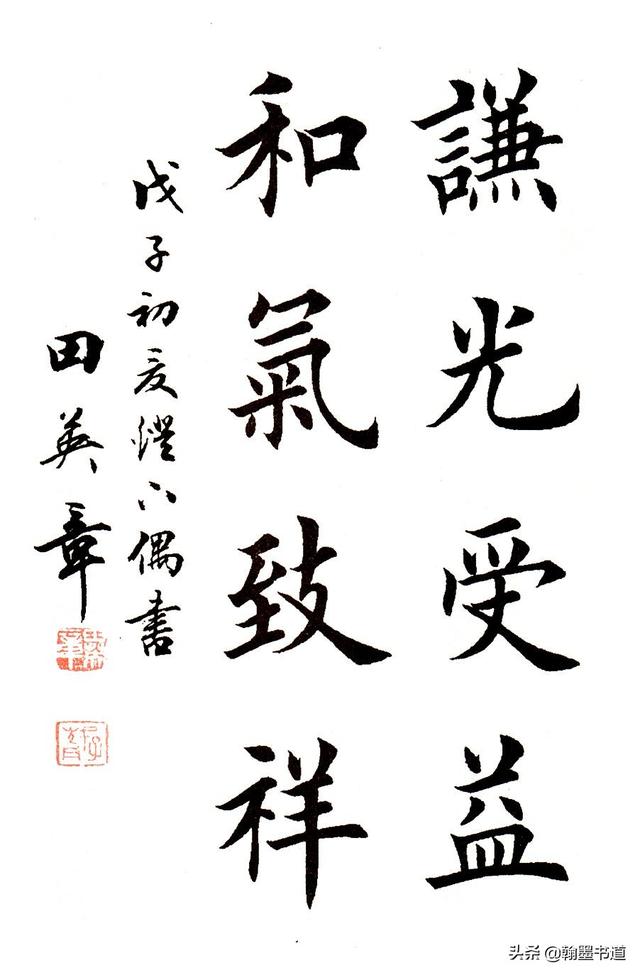 謙光受益
和氣致祥
戊子初夏燈下偶書
田英章
头条@翰墨书道